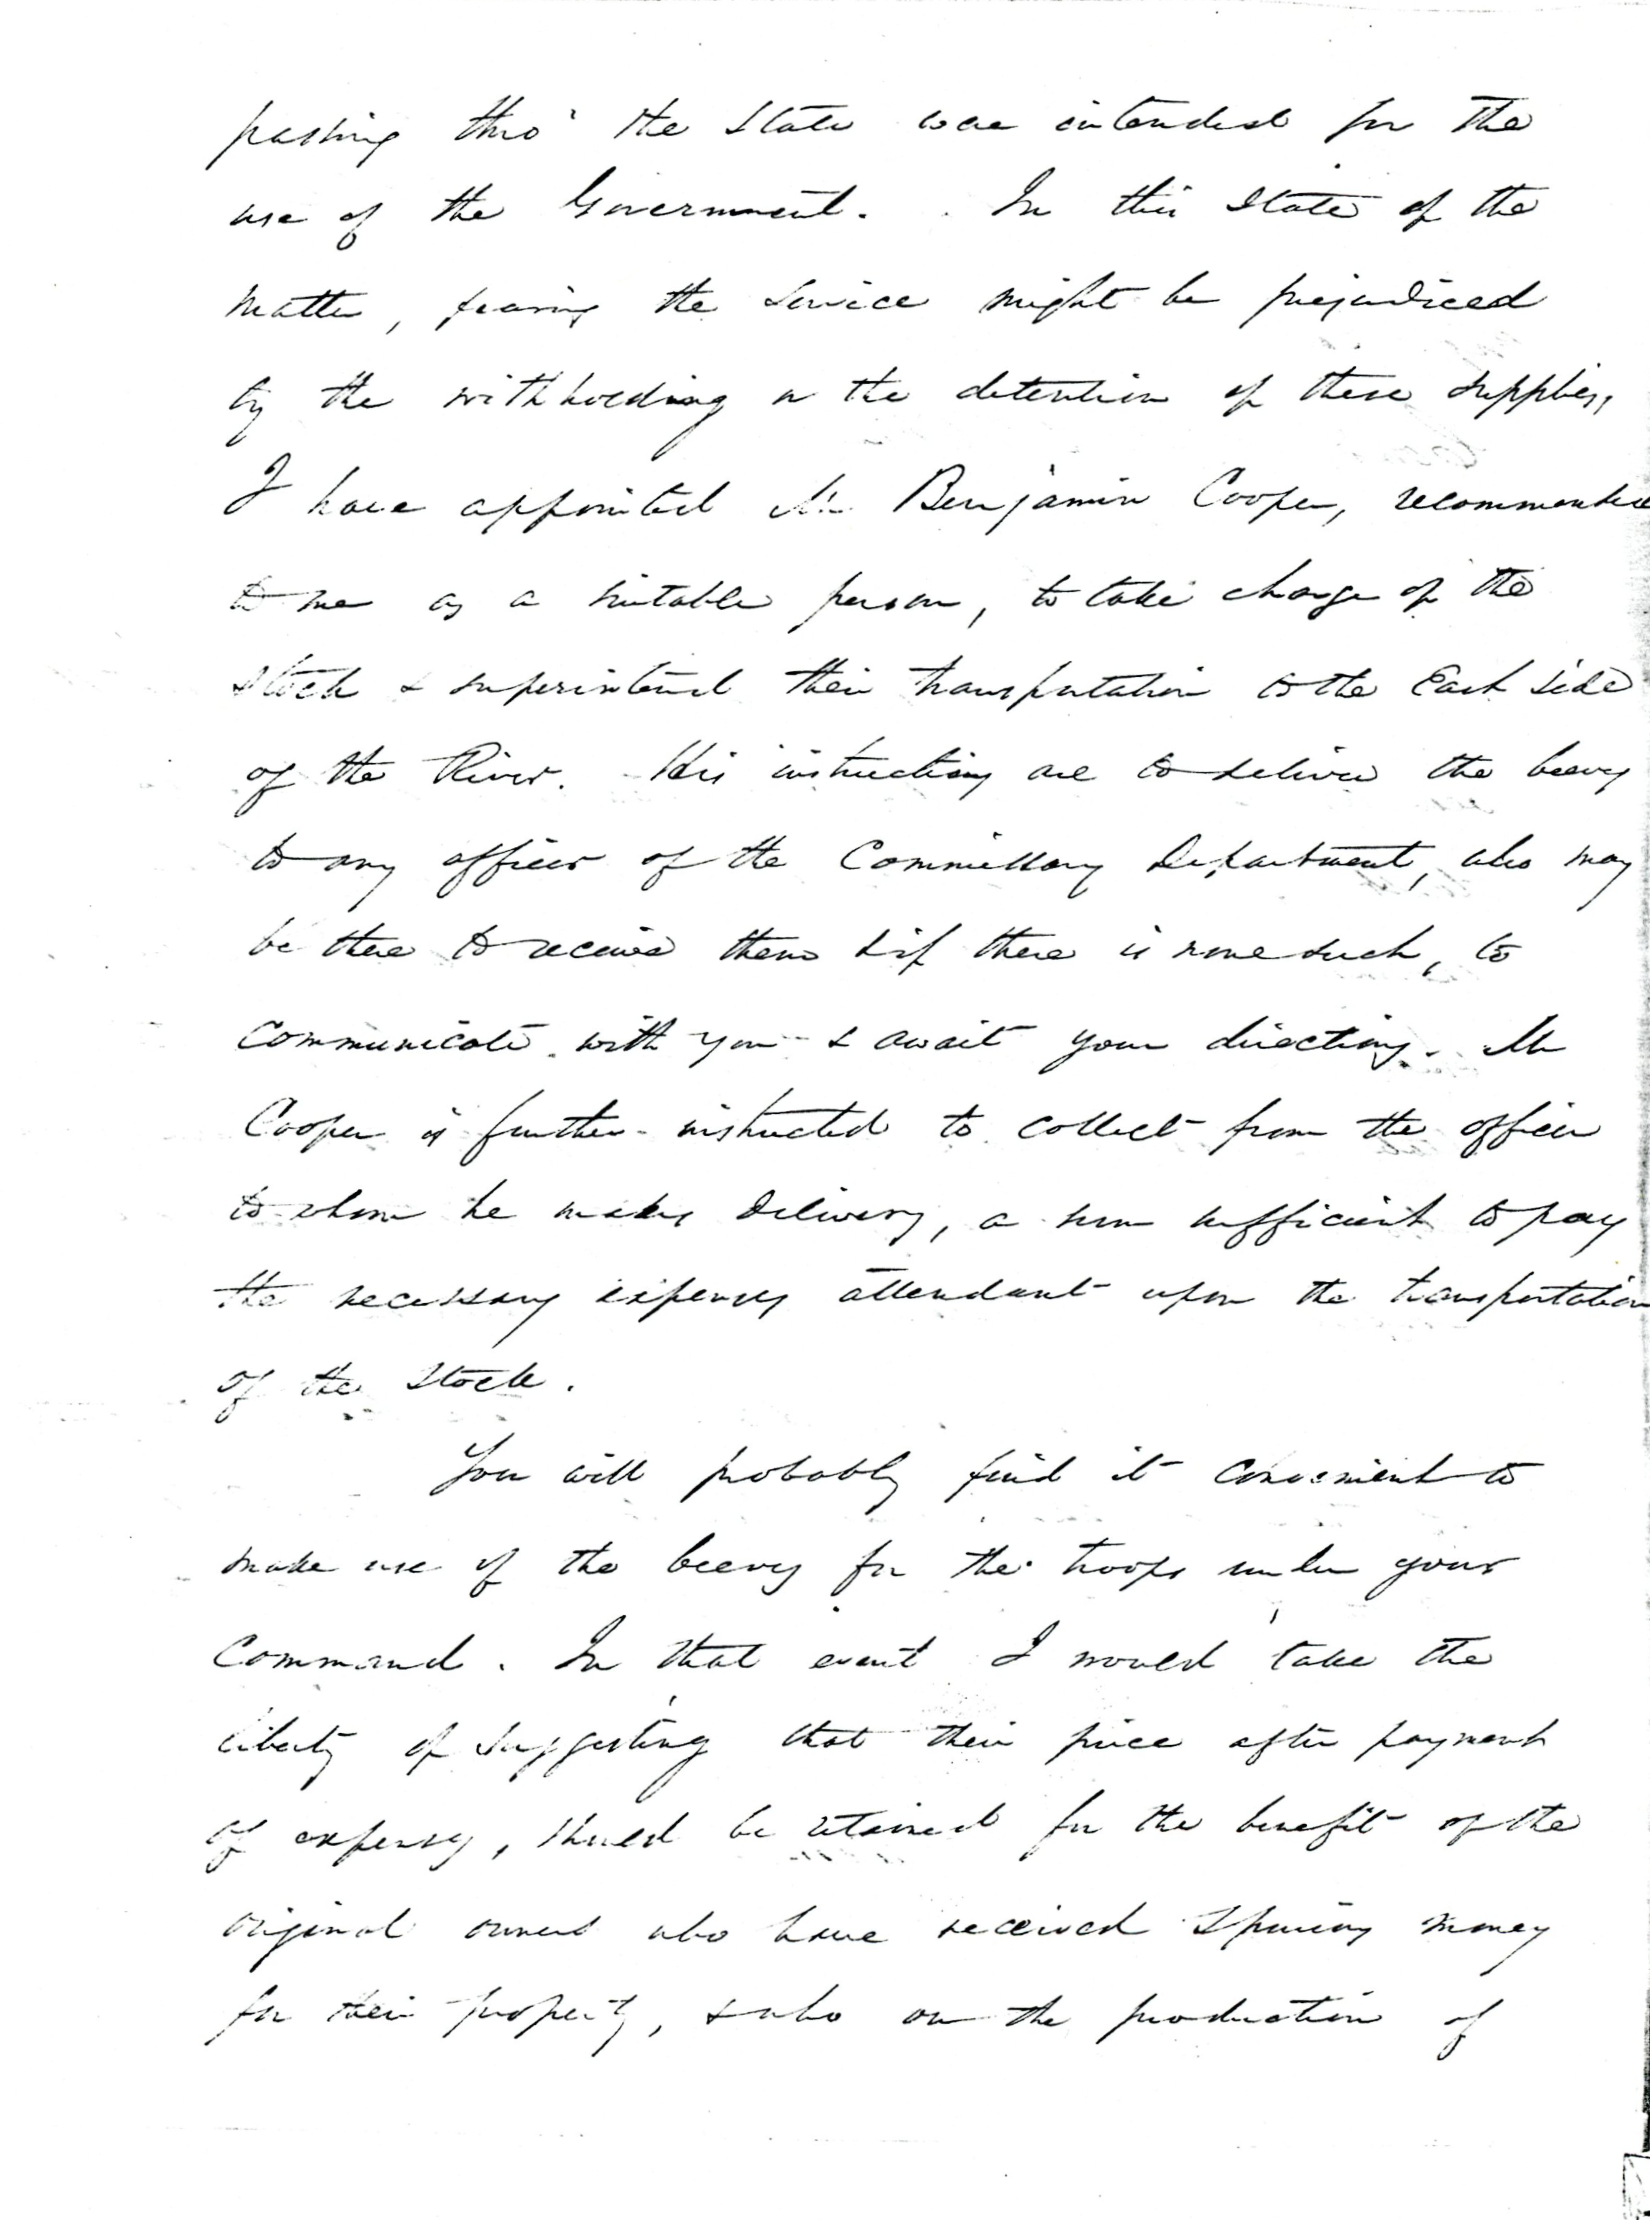 passing thro' the State was intended for the
use of the Government. In this State of the
matter, fearing the service might be prejudiced
by the withholding or the detention of these supplies,
I have appointed Mr Benjamin Cooper, recommended
to me as a suitable person, to take charge of the
stock & superintend their transportation to the East side
of the River. His instructions are to deliver the beeves
to any officer of the Commissary Department, who may
be there to receive them & if there is none such, to
communicate with you & await your directions. Mr
Cooper is further instructed to collect from the officer
to whom he makes delivery, a sum sufficient to pay
the necessary expenses attendant upon the transportation
of the Stock.
You will probably find it convenient to
make use of the beeves for the troops under your
Command. In that event I would take the
liberty of suggesting that their price after payment
of expenses, should be retained for the benefit of the
original owners who have received spurious money
for their property, & who on the production of